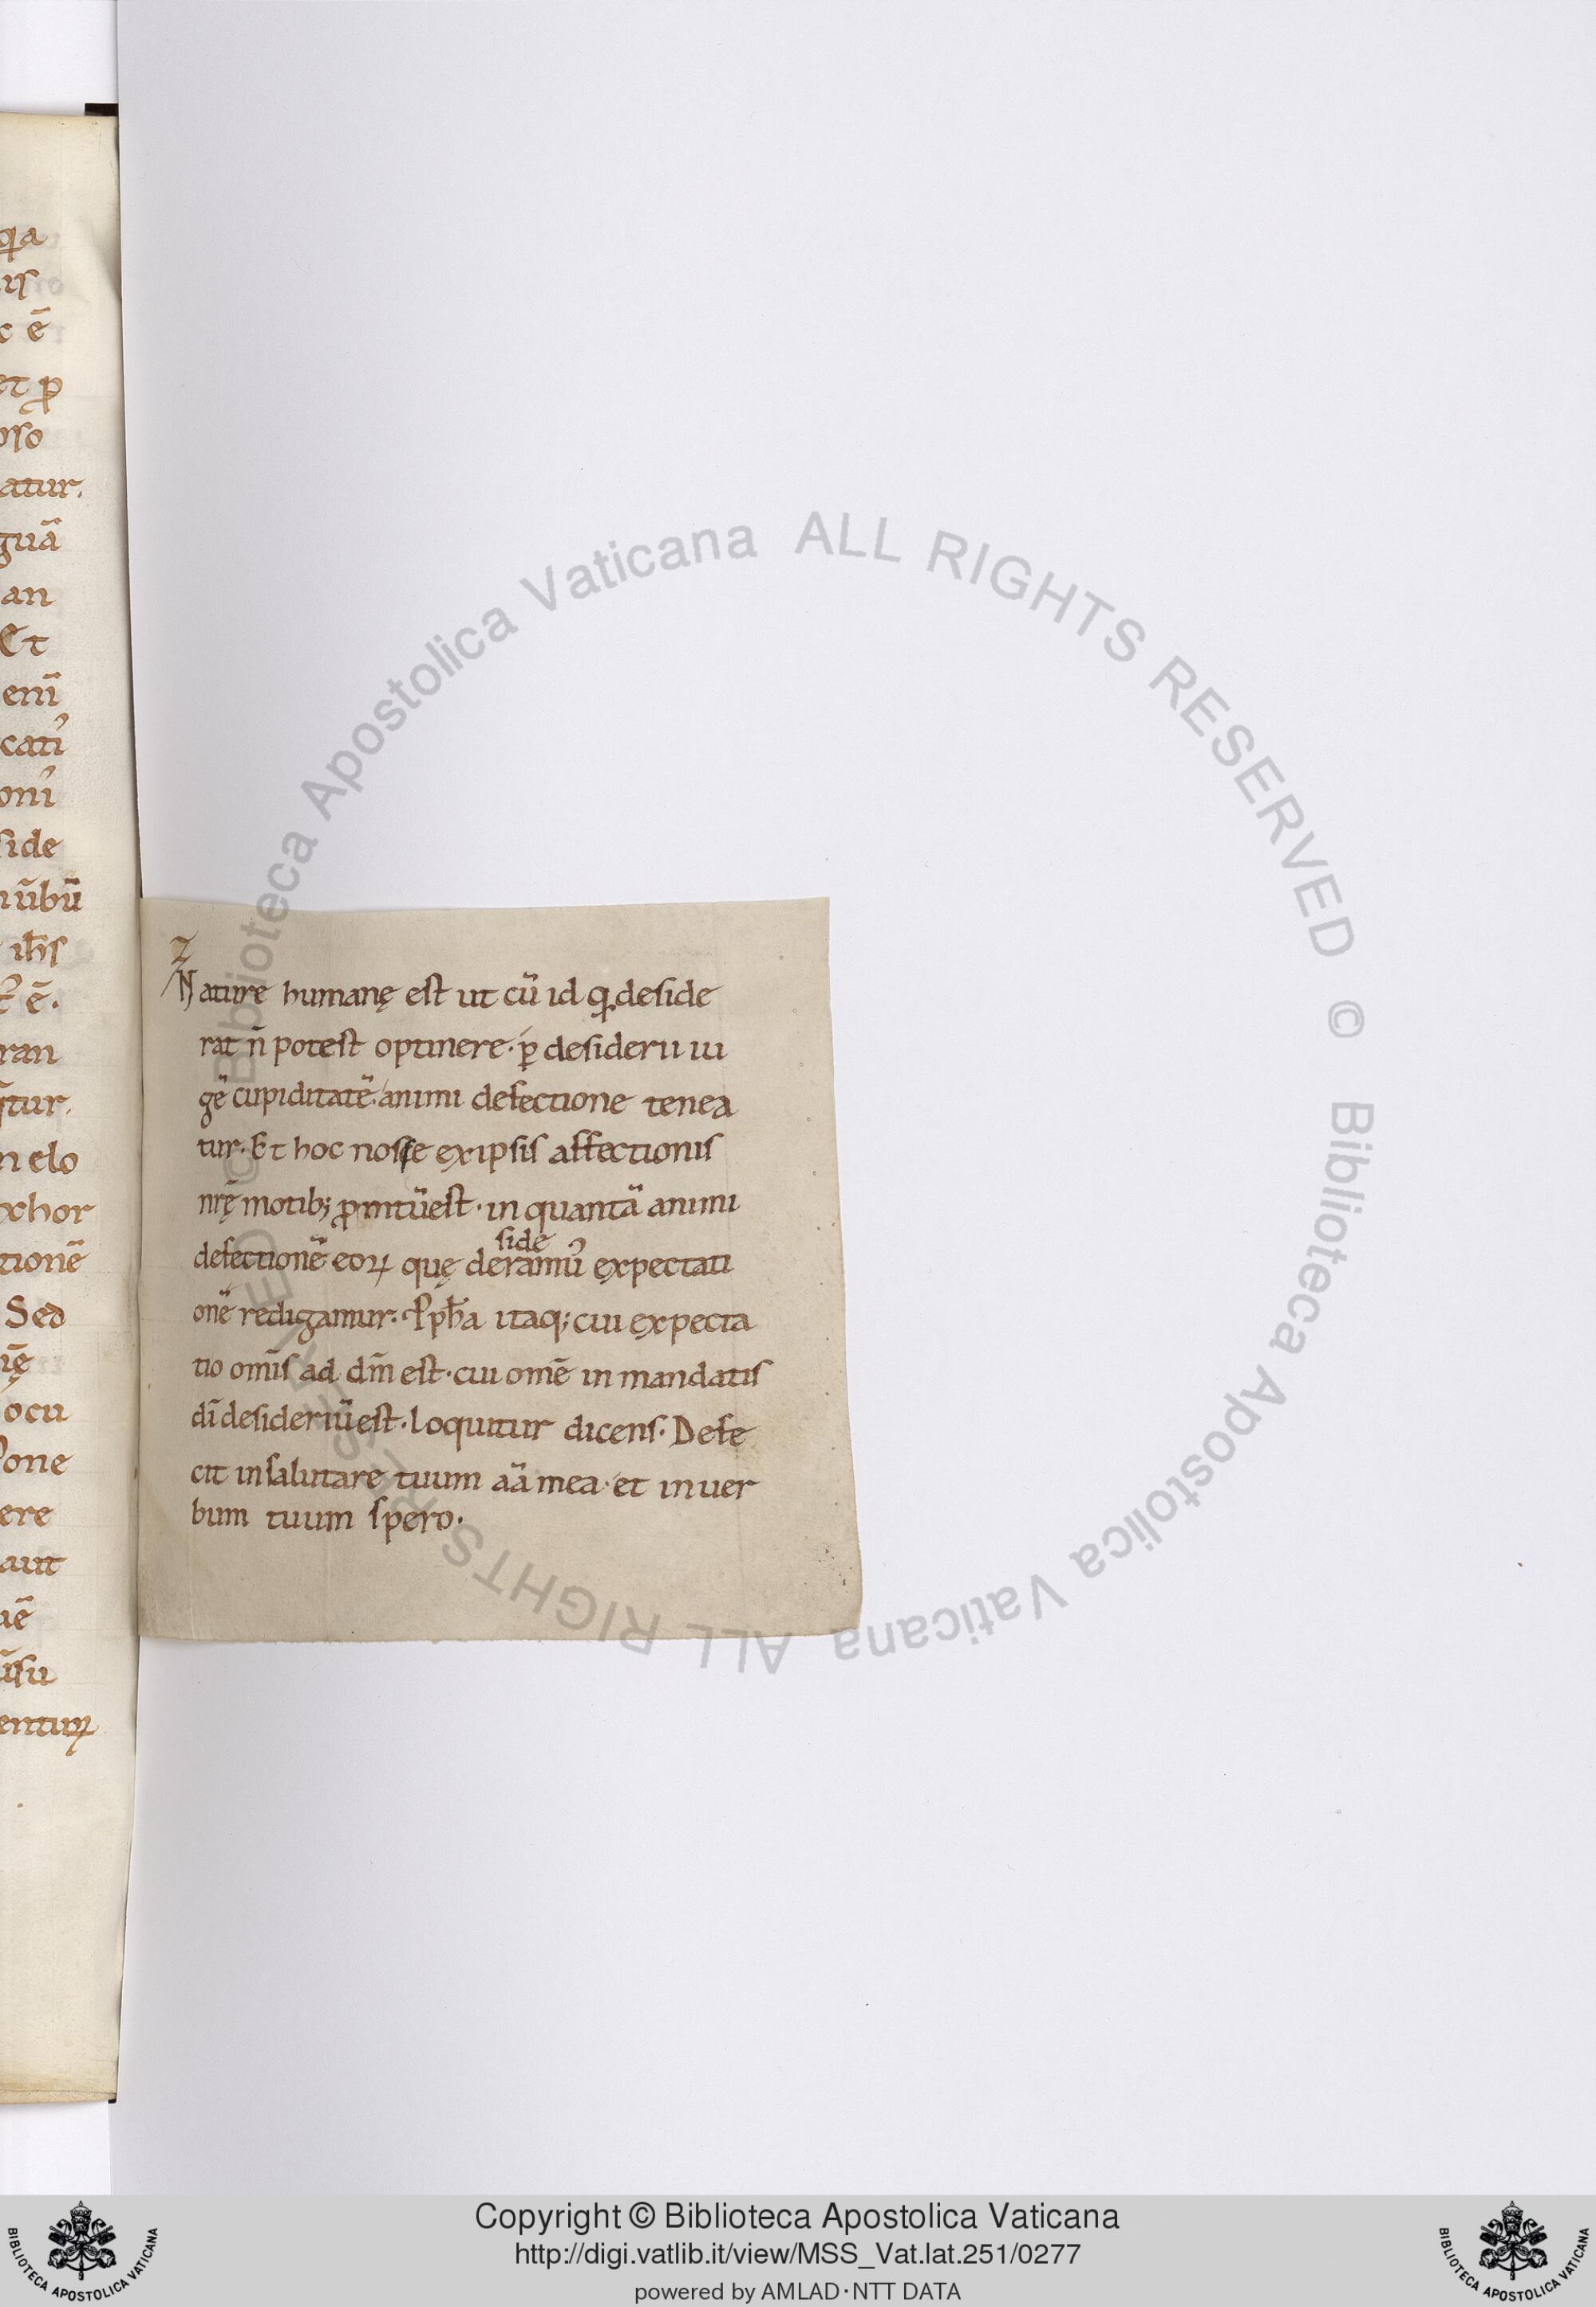 qa
uis
c ē
et ꝓ
oso
atur.
guā
an
Et
enī
cati᾿
oni᾿
side
nūbū
ih̄s
ē.
ran
r̄tur.
n elo
xhor
tionē
Sed
ię
ocu
Pone
ere
aut
uē
ūsu
entuꝝ
Nature humanę est ut cū id qđ deside
rat n̄ potest optinere. ꝑ desiderii iu
gē cupiditatē. animi defectione tenea
tur. Et hoc nosse ex ipsis affectionis
nr̄ę motib; ꝓmtū est. in quantā animi
side
defectionē eoꝝ quę deramu᾿ expectati
onē redigamur. Ppħa itaq; cui expecta
tio om̄is ad dm̄ est. cui omē in mandatis
dī desideriū est. loquitur dicens. Defe
cit in salutare tuum aā mea. et in uer
bum tuum spero.
© Biblioteca Apostolica Vaticana ALL RIGHTS RESERVED © Biblioteca Apostolica Vaticana ALL RIGHTS RESERVED
Copyright © Biblioteca Apostolica Vaticana
http://digi.vatlib.it/view/MSS_Vat.lat.251/0277
powered by AMLAD·NTT DATA
BIBLIOTECA APOSTOLICA VATICANA
BIBLIOTECA APOSTOLICA VATICANA